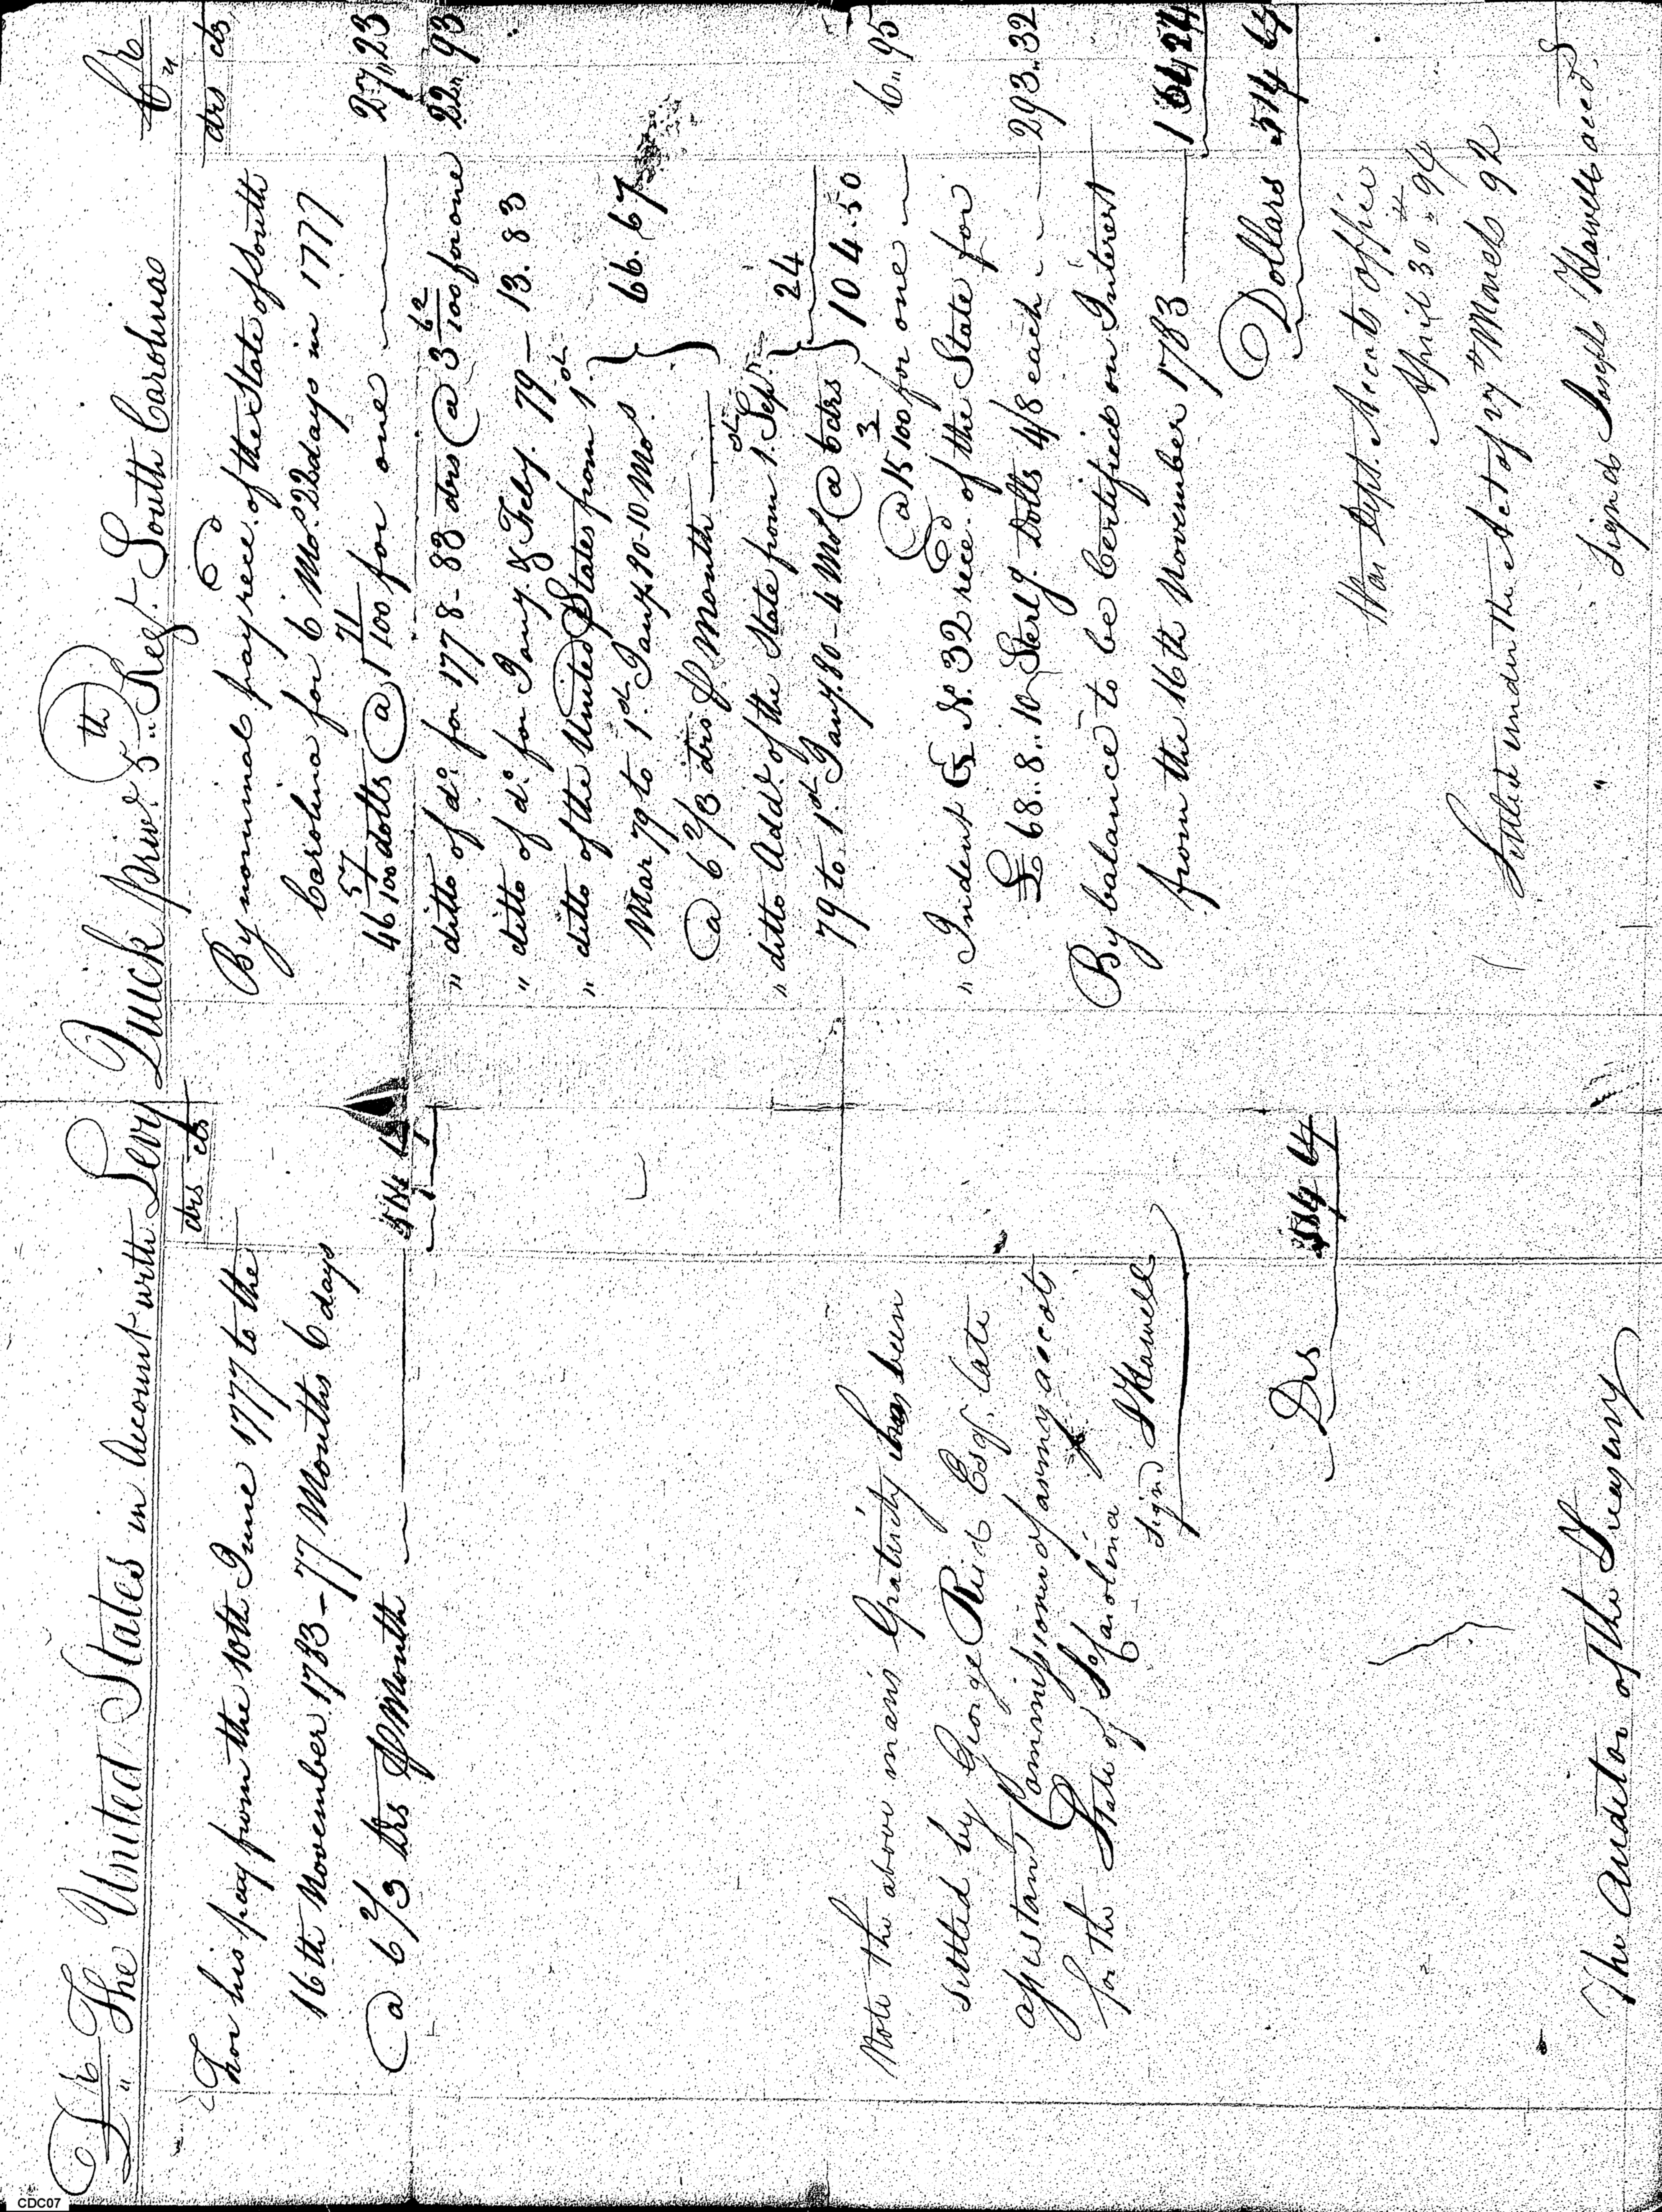 Dr The United States in Account with Levy Quick priv. 5th Regt. South Carolina Cr
drs cts
For his pay from the 10th June 1777 to the
16th November 1783 - 77 Months 6 days
@ 6 2/3 drs P Month 514 64
Note the above mans Gratuity has been
settled by George Reid Esq. late
assistant Commissioner of army accots
for the State of So Carolina
Signd J Howell
Drs 514 64
The Auditor of the Treasury
drs cts
By nominal pay reced. of the State of South
Carolina for 6 Mos. 22 days in 1777
46 57/100 dolls @ 1 71/100 for one 27,, 23
" ditto of do. for 1778 - 83 drs @ 3 62/100 for one 22,, 93
" ditto of do. for Jany. & Feby. 79 - 13.83
" ditto of the United States from 1st.
Mar 79 to 1st Jany. 80 - 10 Mos.
@ 6 2/3 drs P Month 66.67
" ditto Addl. of the State from 1st. Sept.
79 to 1st Jany. 80 - 4 Mos @ 6 drs 24
104.50
@ 15 3/100 for one 6,, 95
" Indent G No. 32 reced. of the State for
£ 68.. 8.. 10 Sterlg. Dolls 4/8 each 293..32
By balance to be Certified on Interest
from the 16th November 1783 164 24
Dollars 514 64
War Dept. Accots office
April 30th 94
Settled under the Act of 27th March 92
" Signd Joseph Howell acct.
CDC07